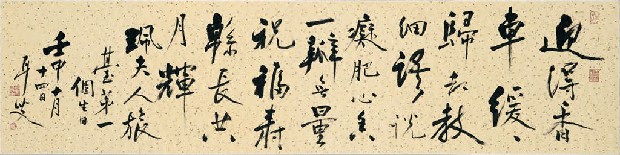 迎得香
車緩〻
歸却教
細語説
癡肥心香
一瓣無量
祝福壽
緜長共
月輝
珮夫人旅
臺第一
個生日
壬申十月
十四日